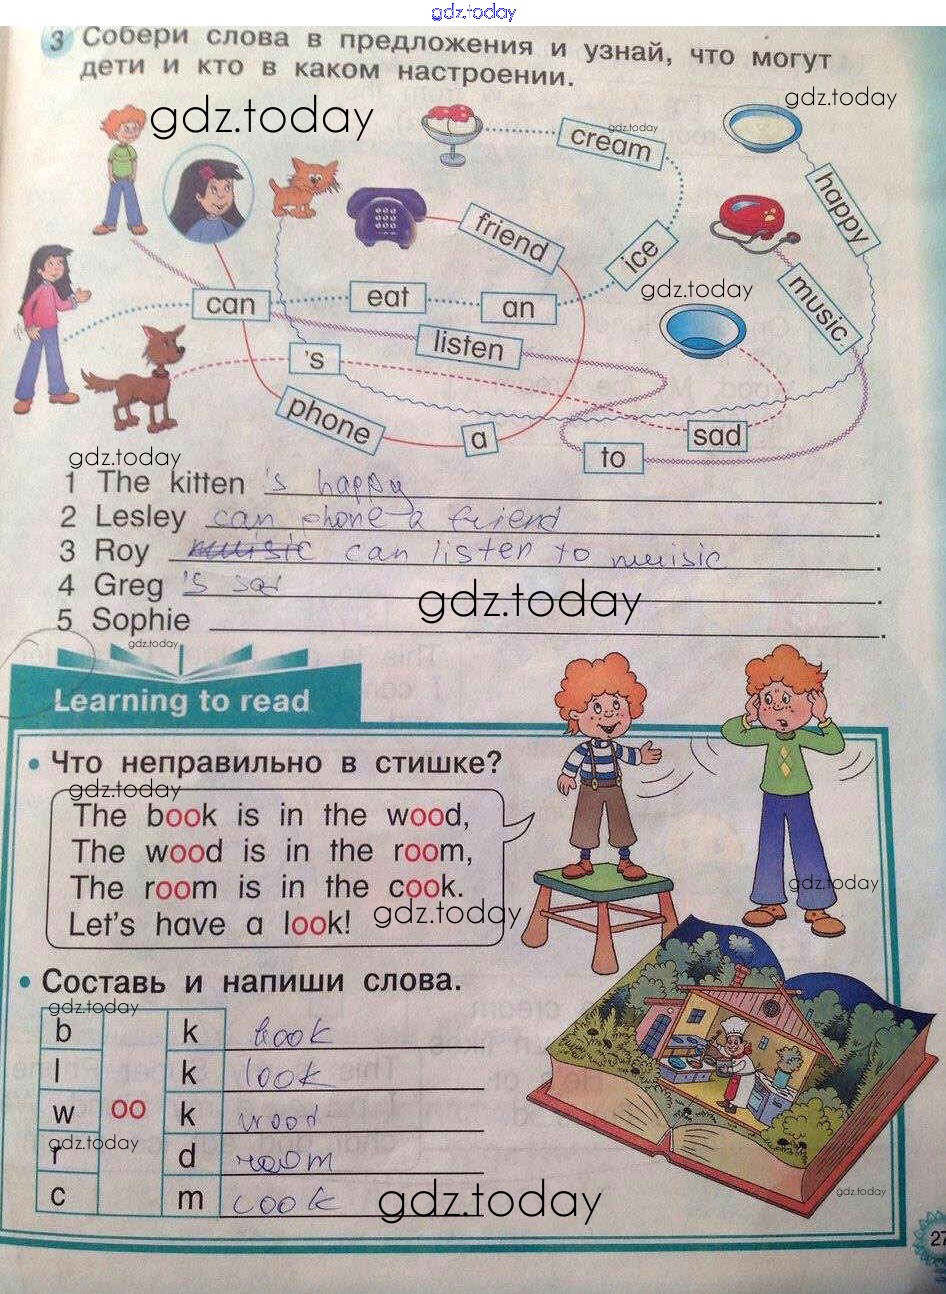 gdz.today
3 Собери слова в предложения и узнай, что могут
дети и кто в каком настроении.
gdz.today
gdz.today
gdz.today
cream
happy
friend
ice
gdz.today
can
eat
an
music.
listen
's
phone
a
sad
to
gdz.today
1 The kitten 's happy.
2 Lesley can phone a friend.
3 Roy can listen to muisic.
4 Greg 's sad.
gdz.today
5 Sophie .
gdz.today
Learning to read
• Что неправильно в стишке?
gdz.today
The book is in the wood,
The wood is in the room,
The room is in the cook.
gdz.today
Let's have a look!
gdz.today
• Составь и напиши слова.
gdz.today
b k book
l k look
w oo k wood
gdz.today
r d room
c m cook
gdz.today
gdz.today
27